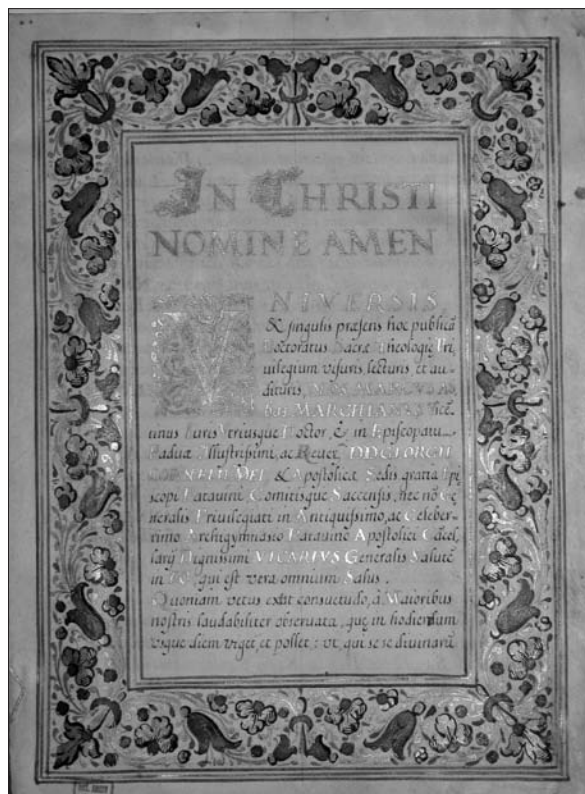 IN CHRISTI
NOMINE AMEN
VNIVERSIS
& singulis præsens hoc publicū
Doctoratus Sacræ Theologię Pri
uilegium visuris, lecturis, et au-
dituris,
bus MARCHIANVS
timus Iuris Vtriusque Doctor, & in Episcopatu
Paduæ Illustrissimi, ac Reuer. DD GEORGII
CORNELII DEI, & Apostolicæ Sedis gratia Epi
scopi Patauini Comitisque Saccensis, nec nō Ge
neralis Priuilegiati in Antiquissimo, ac Celeber-
rimo Archigymnasio Patauino Apostolici Cācel
larij Dignissimi VICARIVS Generalis Salutē
in EO, qui est vera omnium Salus.
Quoniam vetus extat consuetudo, à Maioribus
nostris laudabiliter obseruata, quę in hodiernam
vsque diem viget, et pollet: vt, qui se se diuinarū